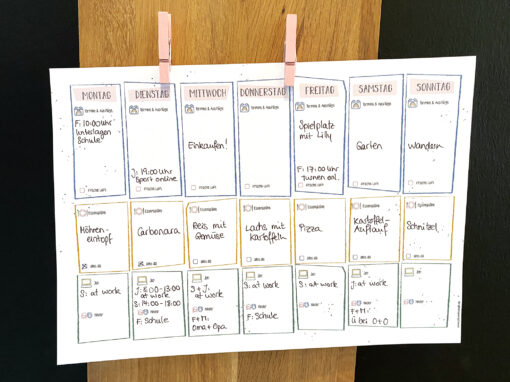 MONTAG
Termine & Wichtiges
F: 10:00 Uhr
Unterlagen
Schule
Frische Luft
DIENSTAG
Termine & Wichtiges
J: 19:00 Uhr
Sport online
Frische Luft
MITTWOCH
Termine & Wichtiges
Einkaufen!
Frische Luft
DONNERSTAG
Termine & Wichtiges
Frische Luft
FREITAG
Termine & Wichtiges
Spielplatz
mit Lilly
F: 17:00 Uhr
Turnen onl.
Frische Luft
SAMSTAG
Termine & Wichtiges
Garten
Frische Luft
SONNTAG
Termine & Wichtiges
Wandern
Frische Luft
Essensplan
Möhren-
eintopf
alles da
Essensplan
Carbonara
alles da
Essensplan
Reis mit
Gemüse
alles da
Essensplan
Lachs mit
Kartoffeln
alles da
Essensplan
Pizza
alles da
Essensplan
Kartoffel-
Auflauf
alles da
Essensplan
Schnitzel
alles da
Job
S: at work
Kinder
Job
J: 8:00-13:00
at work
S: 14:00-18:00
Kinder
F: Schule
Job
S + J:
at work
Kinder
F+M:
Oma+Opa
Job
S: at work
Kinder
F: Schule
Job
S: at work
Kinder
Job
J: at work
Kinder
F+M:
übei O+O
Job
Kinder